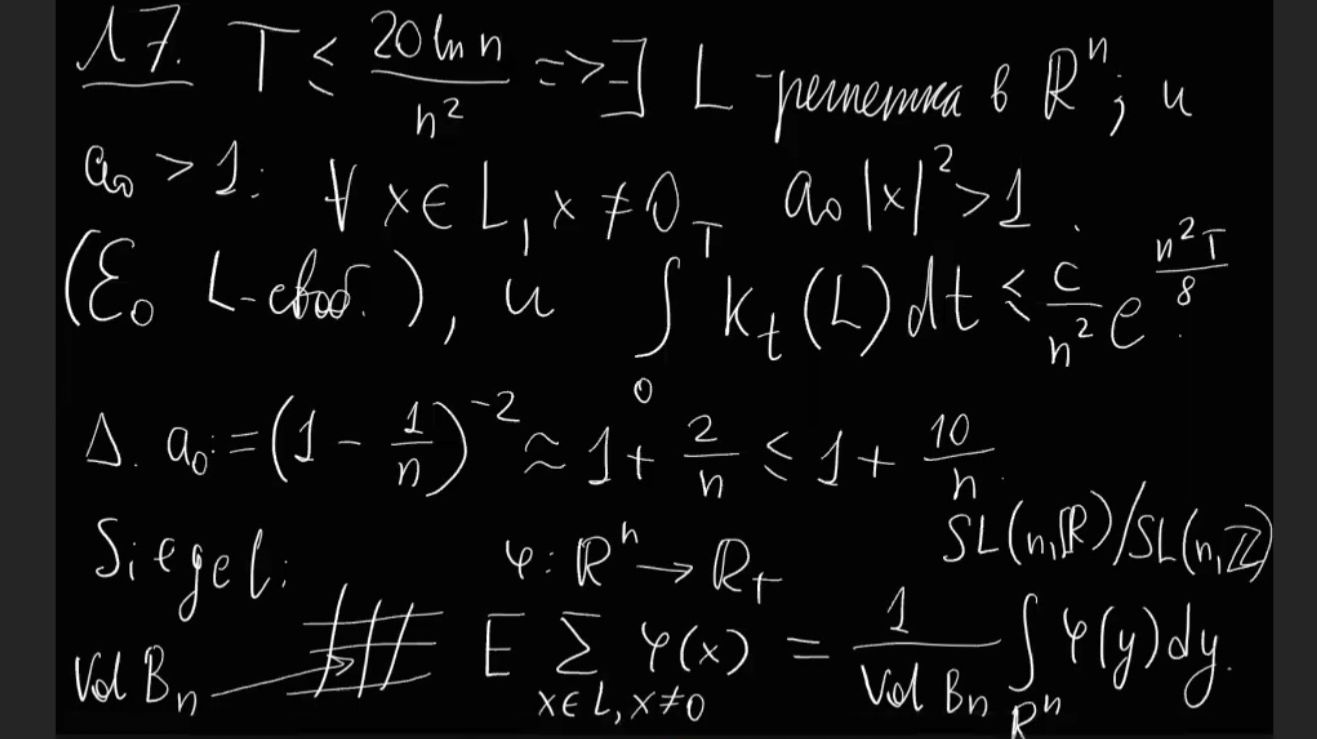 17. T ≤ 20 ln n / n² => ∃ L - решетка в ℝⁿ, и
a₀ > 1: ∀ x ∈ L, x ≠ 0 a₀|x|² > 1.
(Ɛ₀ L-своб.), и ∫₀ᵀ k_t(L) dt ≤ c/n² e^(n²T/8).
Δ. a₀ := (1 - 1/n)⁻² ≈ 1 + 2/n ≤ 1 + 10/n.
Siegel: φ: ℝⁿ → ℝ₊ SL(n,ℝ)/SL(n,ℤ)
Vol Bₙ E ∑_{x∈L, x≠0} φ(x) = 1/Vol Bₙ ∫_{ℝⁿ} φ(y)dy.